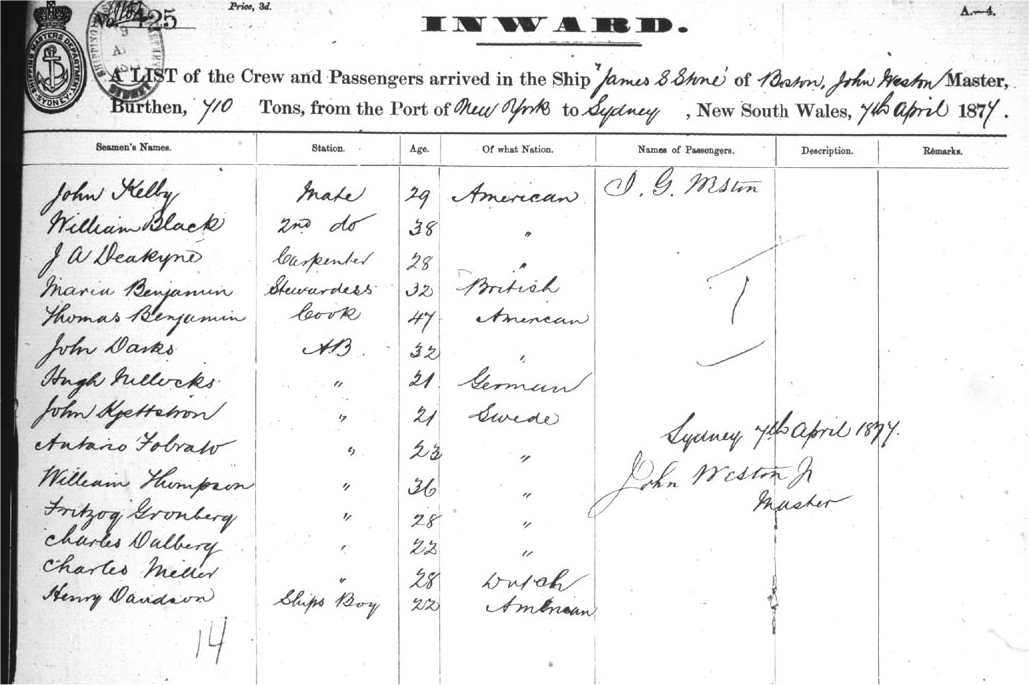 Price, 3d.
No. 425
INWARD.
A.—4.
SHIPPING MASTERS DEPARTMENT SYDNEY
A LIST of the Crew and Passengers arrived in the Ship "James S Stone" of Boston, John Weston Master,
Burthen, 710 Tons, from the Port of New York to Sydney, New South Wales, 7th April 1877.
Seamen's Names. Station. Age. Of what Nation. Names of Passengers. Description. Remarks.
John Kelby Mate 29 American I. G. Weston
William Black 2nd do 38 "
J A Deakyne Carpenter 28 "
Maria Benjamin Stewardess 32 British 1
Thomas Benjamin Cook 47 American
John Danks AB 32 "
Hugh " 21 German
John " 21 Swede
Antonio " 23 "
Sydney 7th April 1877.
William Thompson " 36 "
John Weston Jr
Fritzog Gronberg " 28 "
Master
Charles Dalberg " 22 "
Charles Miller " 28 Dutch
Henry Davidson Ships Boy 22 American
14